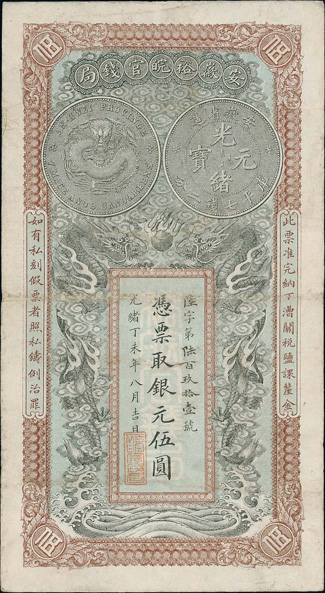 安徽裕皖官錢局
AN-HWEI PROVINCE
光緒元寶
庫平七錢二分
此票准完納丁漕關稅鹽課釐金
陸字第陸百玖拾壹號
憑票取銀元伍圓
光緒丁未年八月吉日
如有私刻假票者照私鑄例治罪